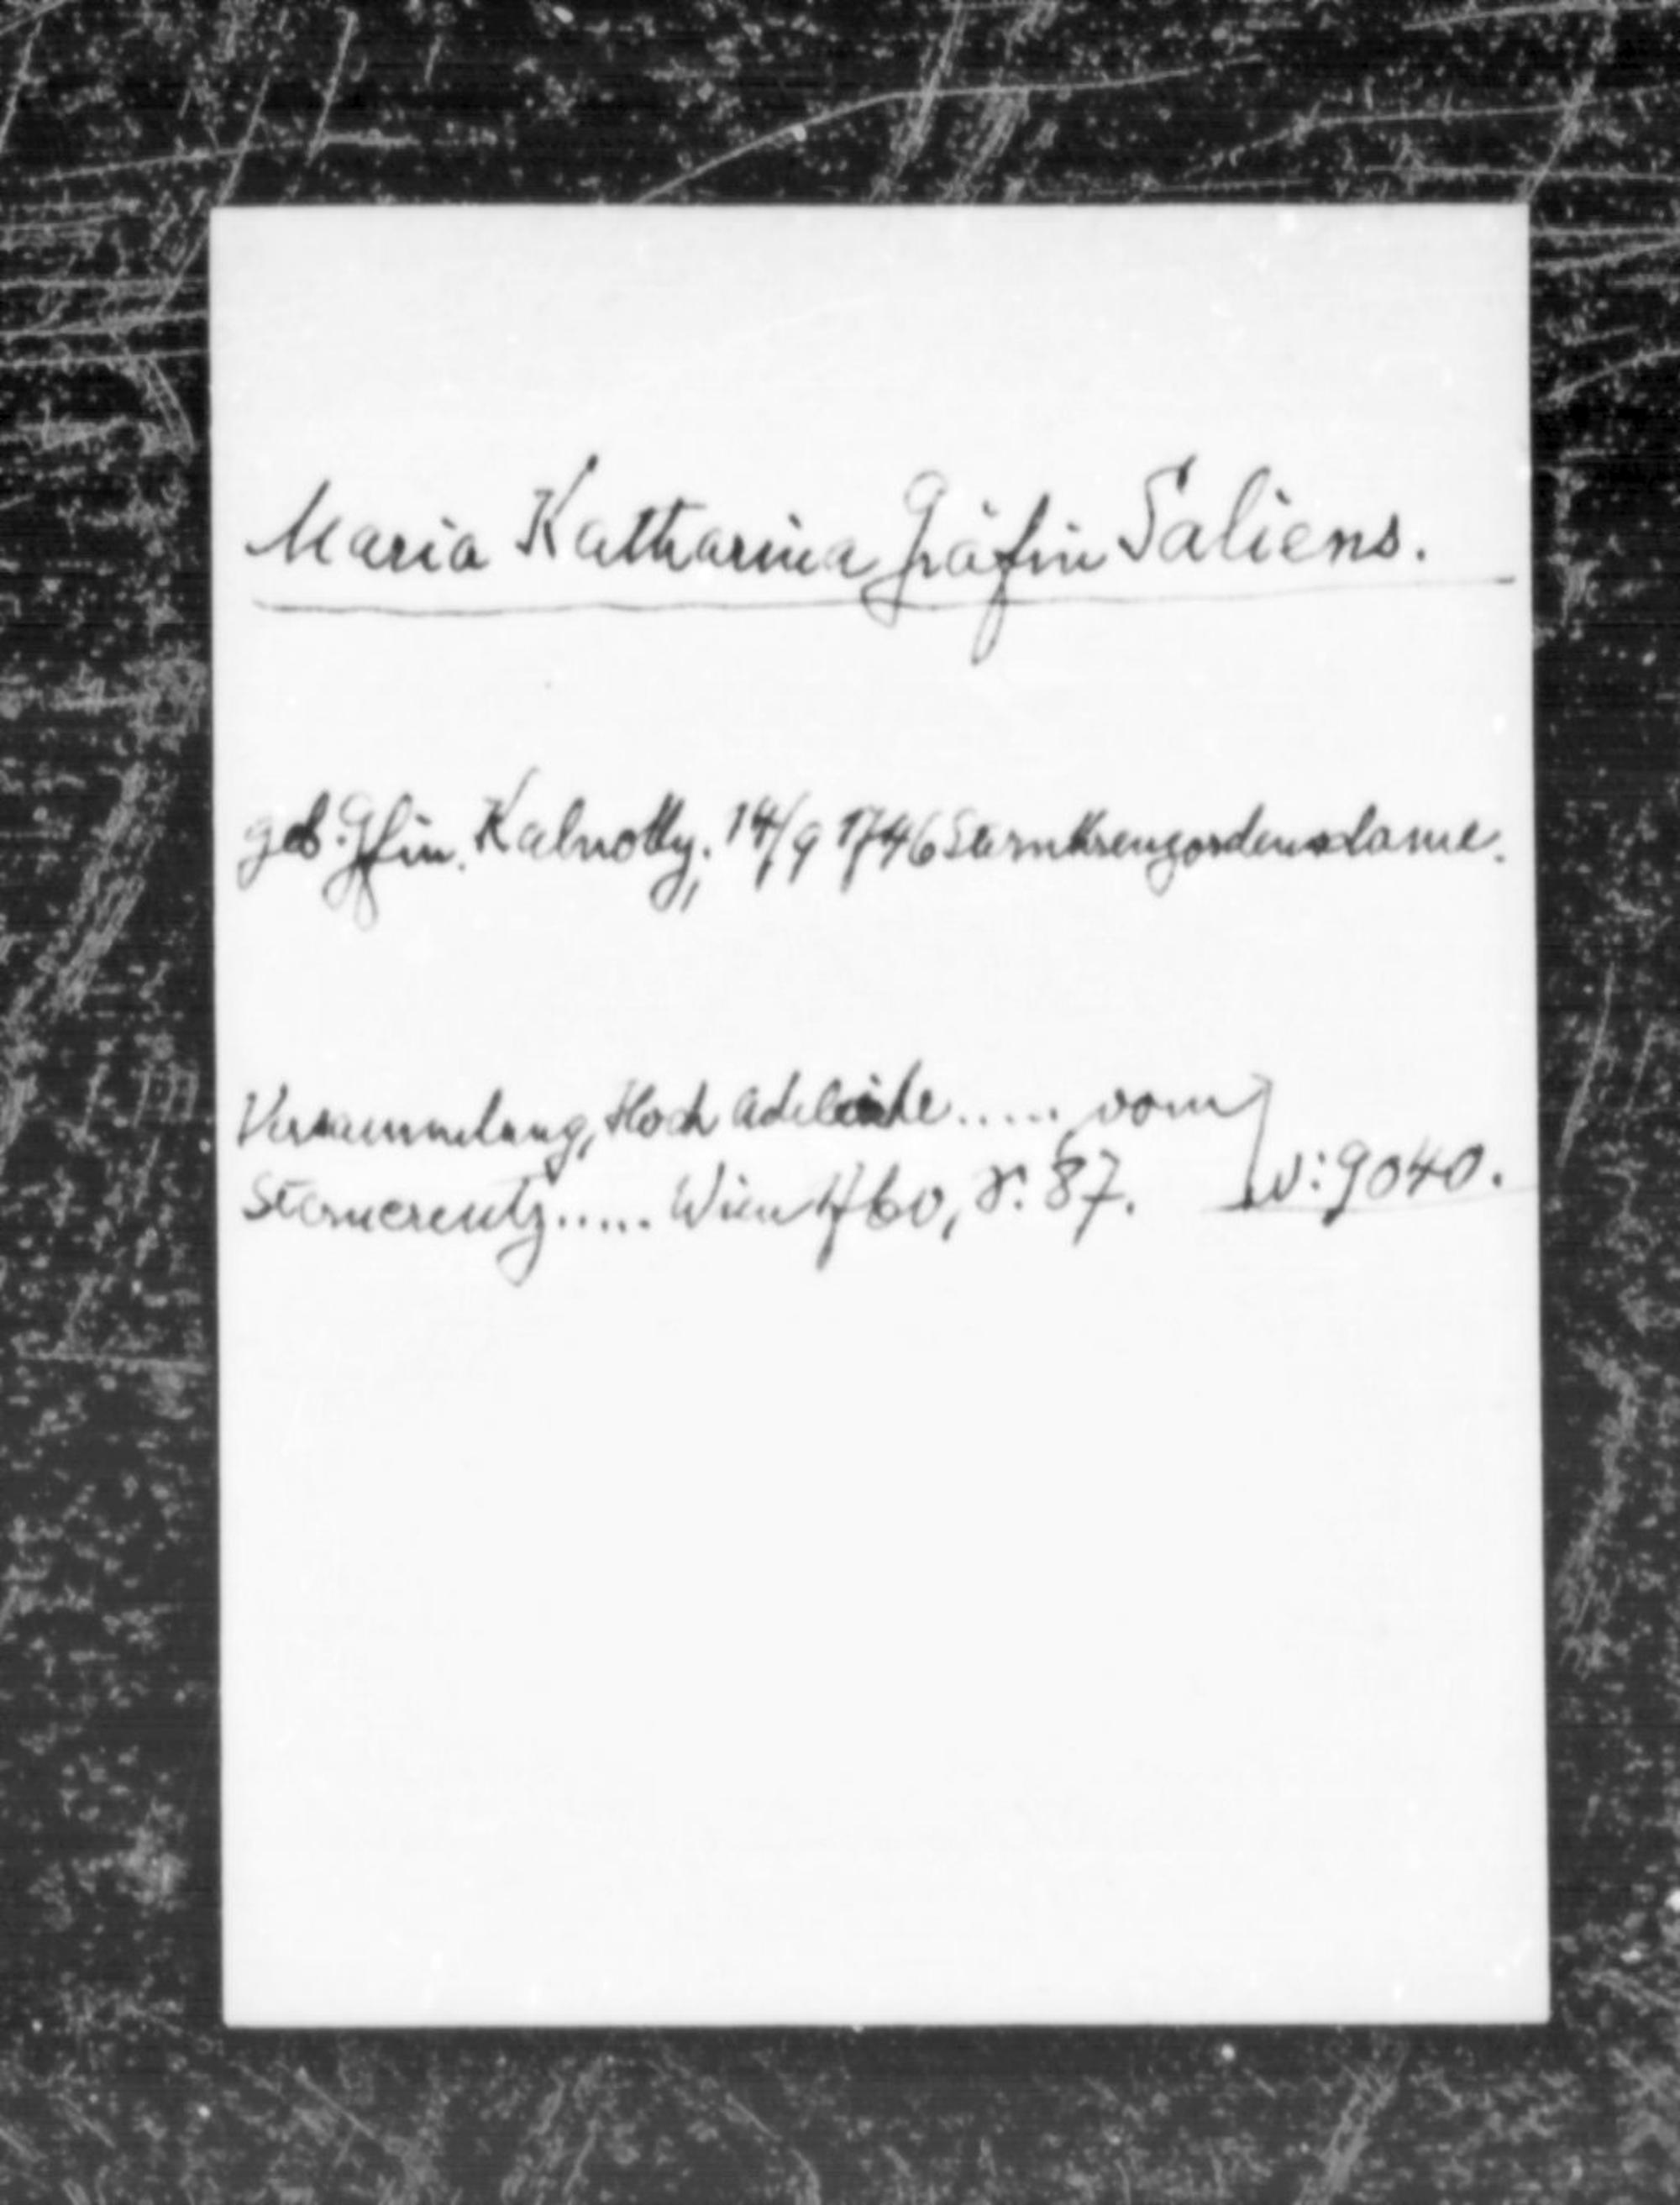 Maria Katharina Gräfin Saliens.
geb. Gfin. Kalnoky, 14/9 1746 Sternkreuzordensdame.
Versammlung, Hoch Adeliche ..... vom
Sterncreutz ..... Wien 1760, S. 87. V: 9040.